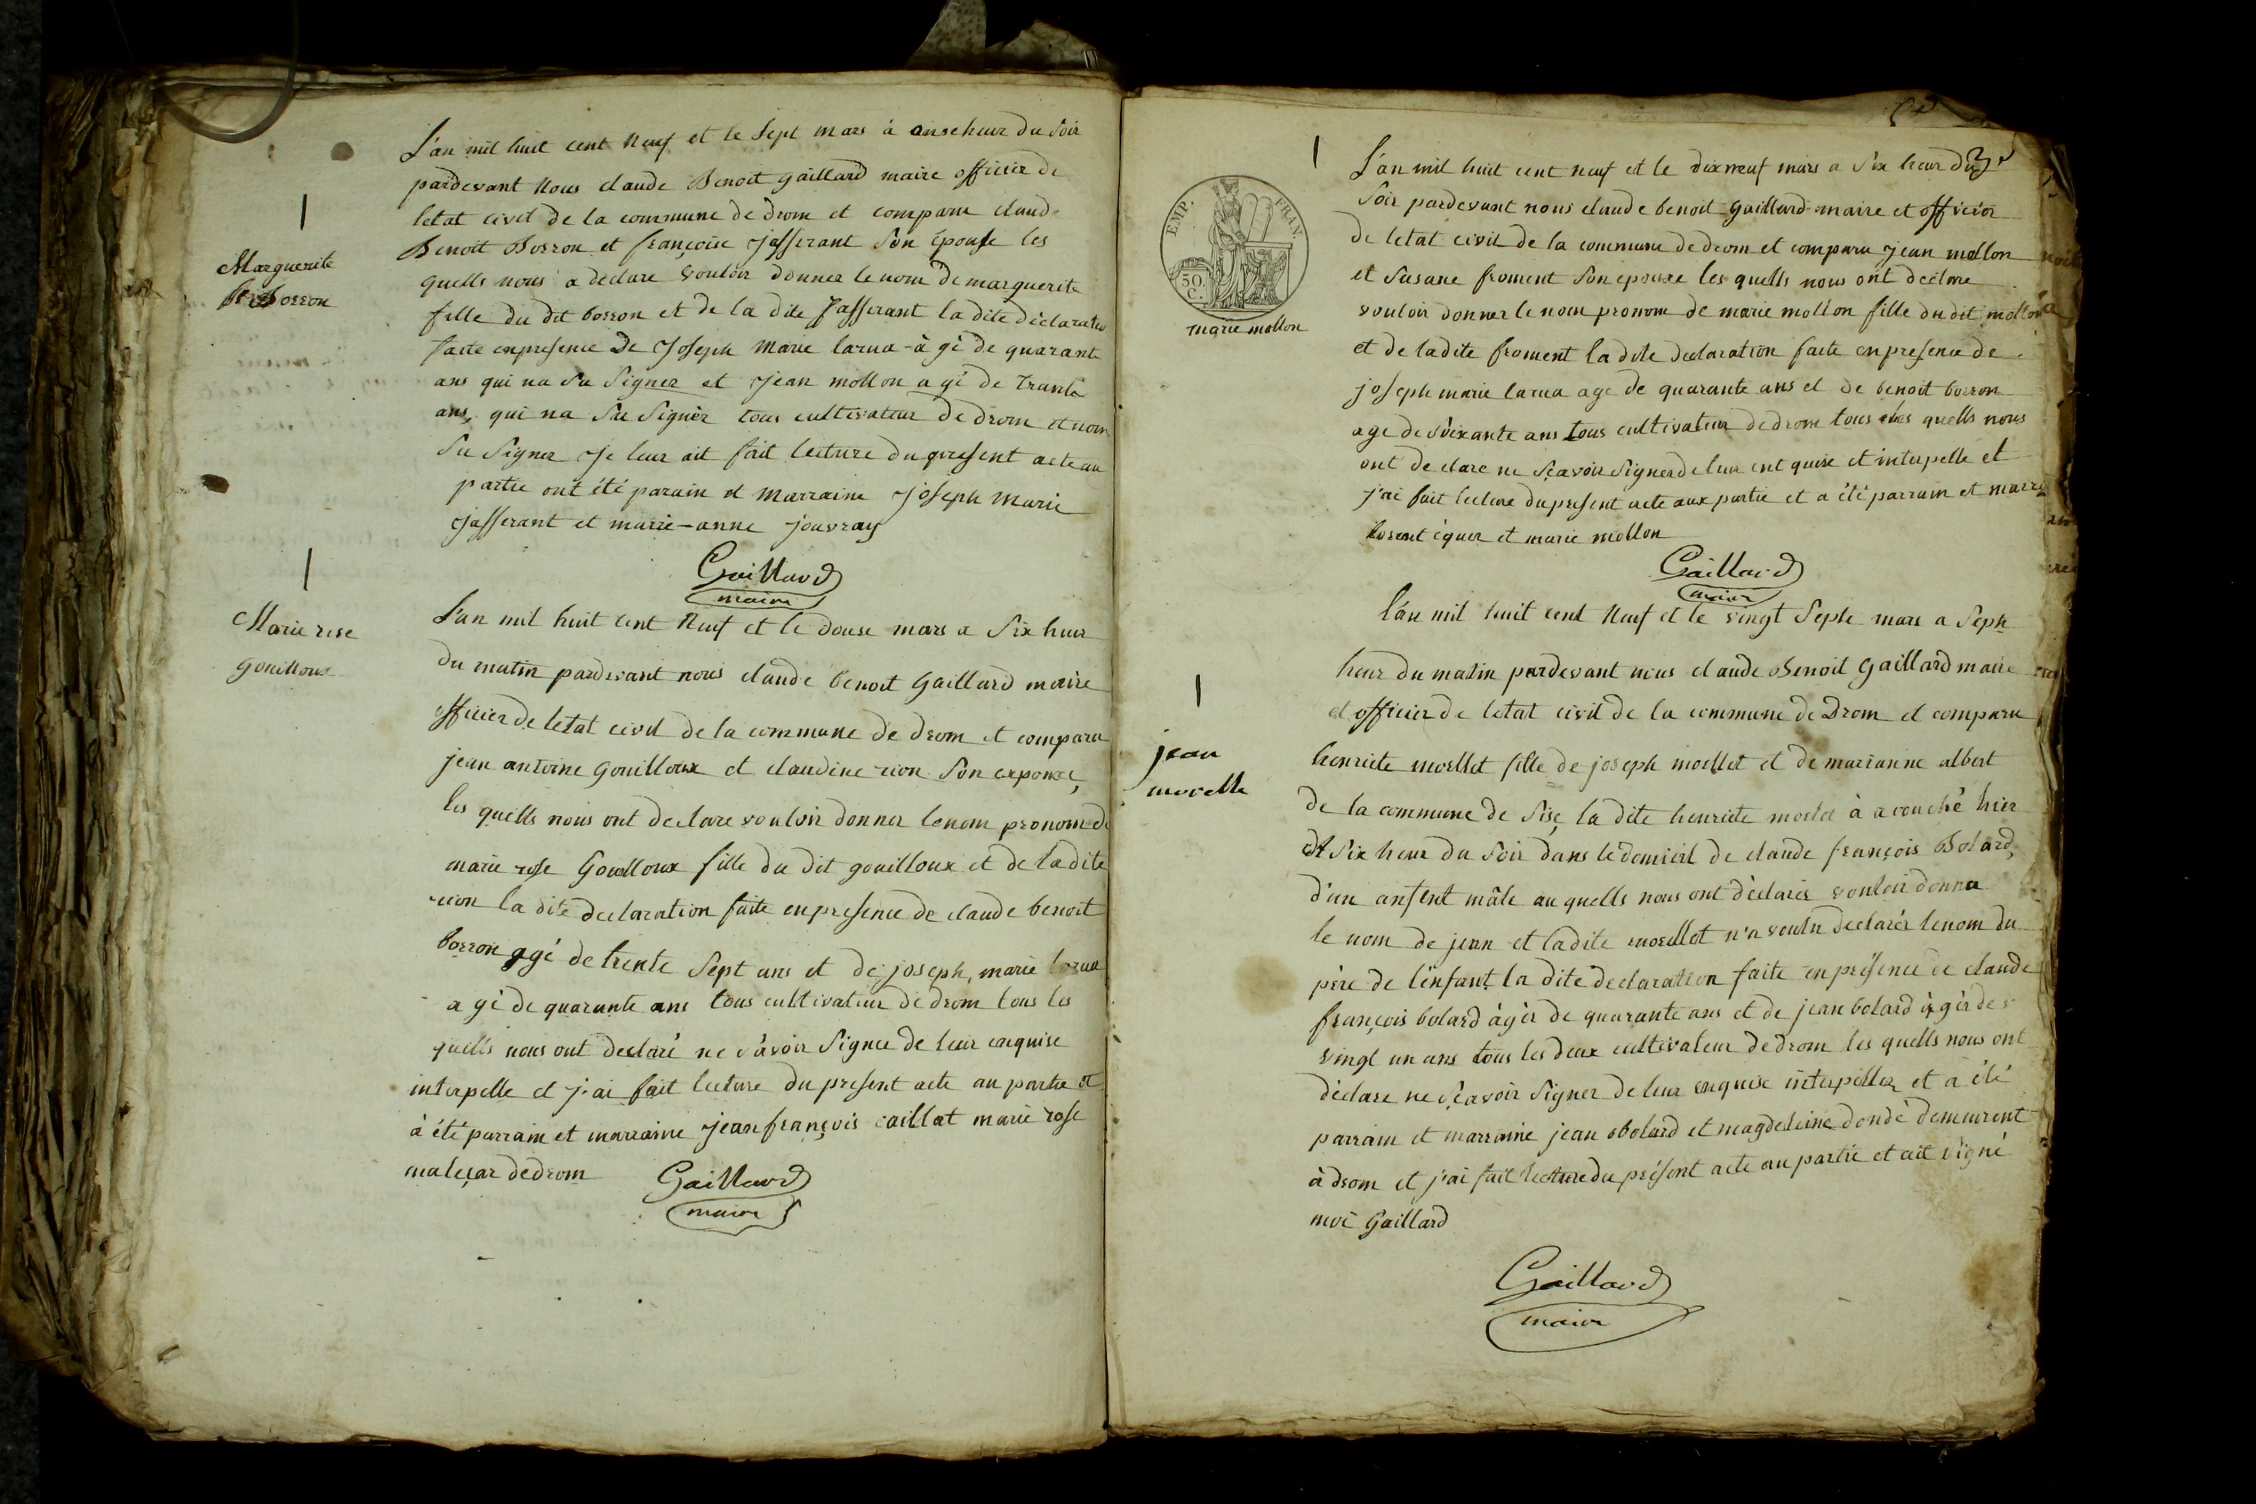 L'an mil huit cent neuf et le sept mars à onse heur du soir
pardevant nous claude Benoit gaillard maire officier de
letat civil de la commune de drom et comparu claude
Benoit Borron et françoise jafferant son épouse les
quells nous a declare vouloir donner le nom de marguerite
fille du dit borron et de la dite jafferant la dite déclaration
faite en presence de joseph marie larua à gé de quarante
ans qui na su signer et jean mollon a gé de trante
ans, qui na su signèr tous cultivateur de drom et nom
su signer je leur ait fait lecture du present acte au
partie ont été parain et marraine joseph marie
jafferant et marie-anne jouvray
Gaillard
maire
Marguerite
Borron
L'an mil huit cent neuf et le douse mars a six heur
du matin pardevant nous claude benoit gaillard maire
officier de letat civil de la commune de drom et comparu
jean antoine gouilloux et claudine rion son expouse,
les quells nous ont declare vouloir donner le nom pronom de
marie rose gouilloux fille du dit gouilloux et de la dite
rion la dite declaration faite en presence de claude benoit
borron agé de trente sept ans et de joseph marie larua
a gé de quarante ans tous cultivateur de drom tous les
quells nous ont declaré ne sàvoir signee de leur enquise
interpelle et j'ai fait lecture du present acte au partie et
à été parrain et marraine jean françois caillat marie rose
maleçar de drom
Gaillard
maire
Marie rose
gouilloux
L'an mil huit cent neuf et le dix neuf mars a six heur du
soir pardevant nous claude benoit gaillard maire et officier
de letat civil de la commune de drom et comparu jean mollon
et susane froment son epouse les quells nous ont declare
vouloir donner le nom pronom de marie mollon fille du dit mollon
et de la dite froment la dite declaration faite en presence de
joseph marie larua age de quarante ans et de benoit borron
age de soixante ans tous cultivateur de drom tous les quells nous
ont declare ne sçavoir signer de leur ent quise et interpelle et
j'ai fait lecture du present acte aux partie et a été parrain et marr
et marie mollon
Gaillard
maire
EMP. FRAN.
50 C.
marie mollon
l'an mil huit cent neuf et le vingt septe mars a septe
heur du matin pardevant nous claude Benoit gaillard maire
et officier de letat civil de la commune de drom et comparu
henriete moellet fille de joseph moellet et de marianne albert
de la commune de sise, la dite henriete moelet à acouché hier
A six heur du soir dans le domicil de claude françois Bolard,
d'un anfent mâle au quells nous ont déclarés vouloir donna
le nom de jean et ladite moellet n'a voulu declarér le nom du
père de l'enfant la dite declaration faite en présence de claude
françois bolard àgér de quarante ans et de jean bolard àgér de
vingt un ans tous les deux cultivateur de drom les quells nous ont
déclare ne sçavoir signer de leur enquise interpeller et a été
parrain et marraine jean bolard et magdeleine dondé demeurent
à drom et j'ai fait lecture du présent acte au partie et ait signé
moi gaillard
Gaillard
maire
jean
morelle